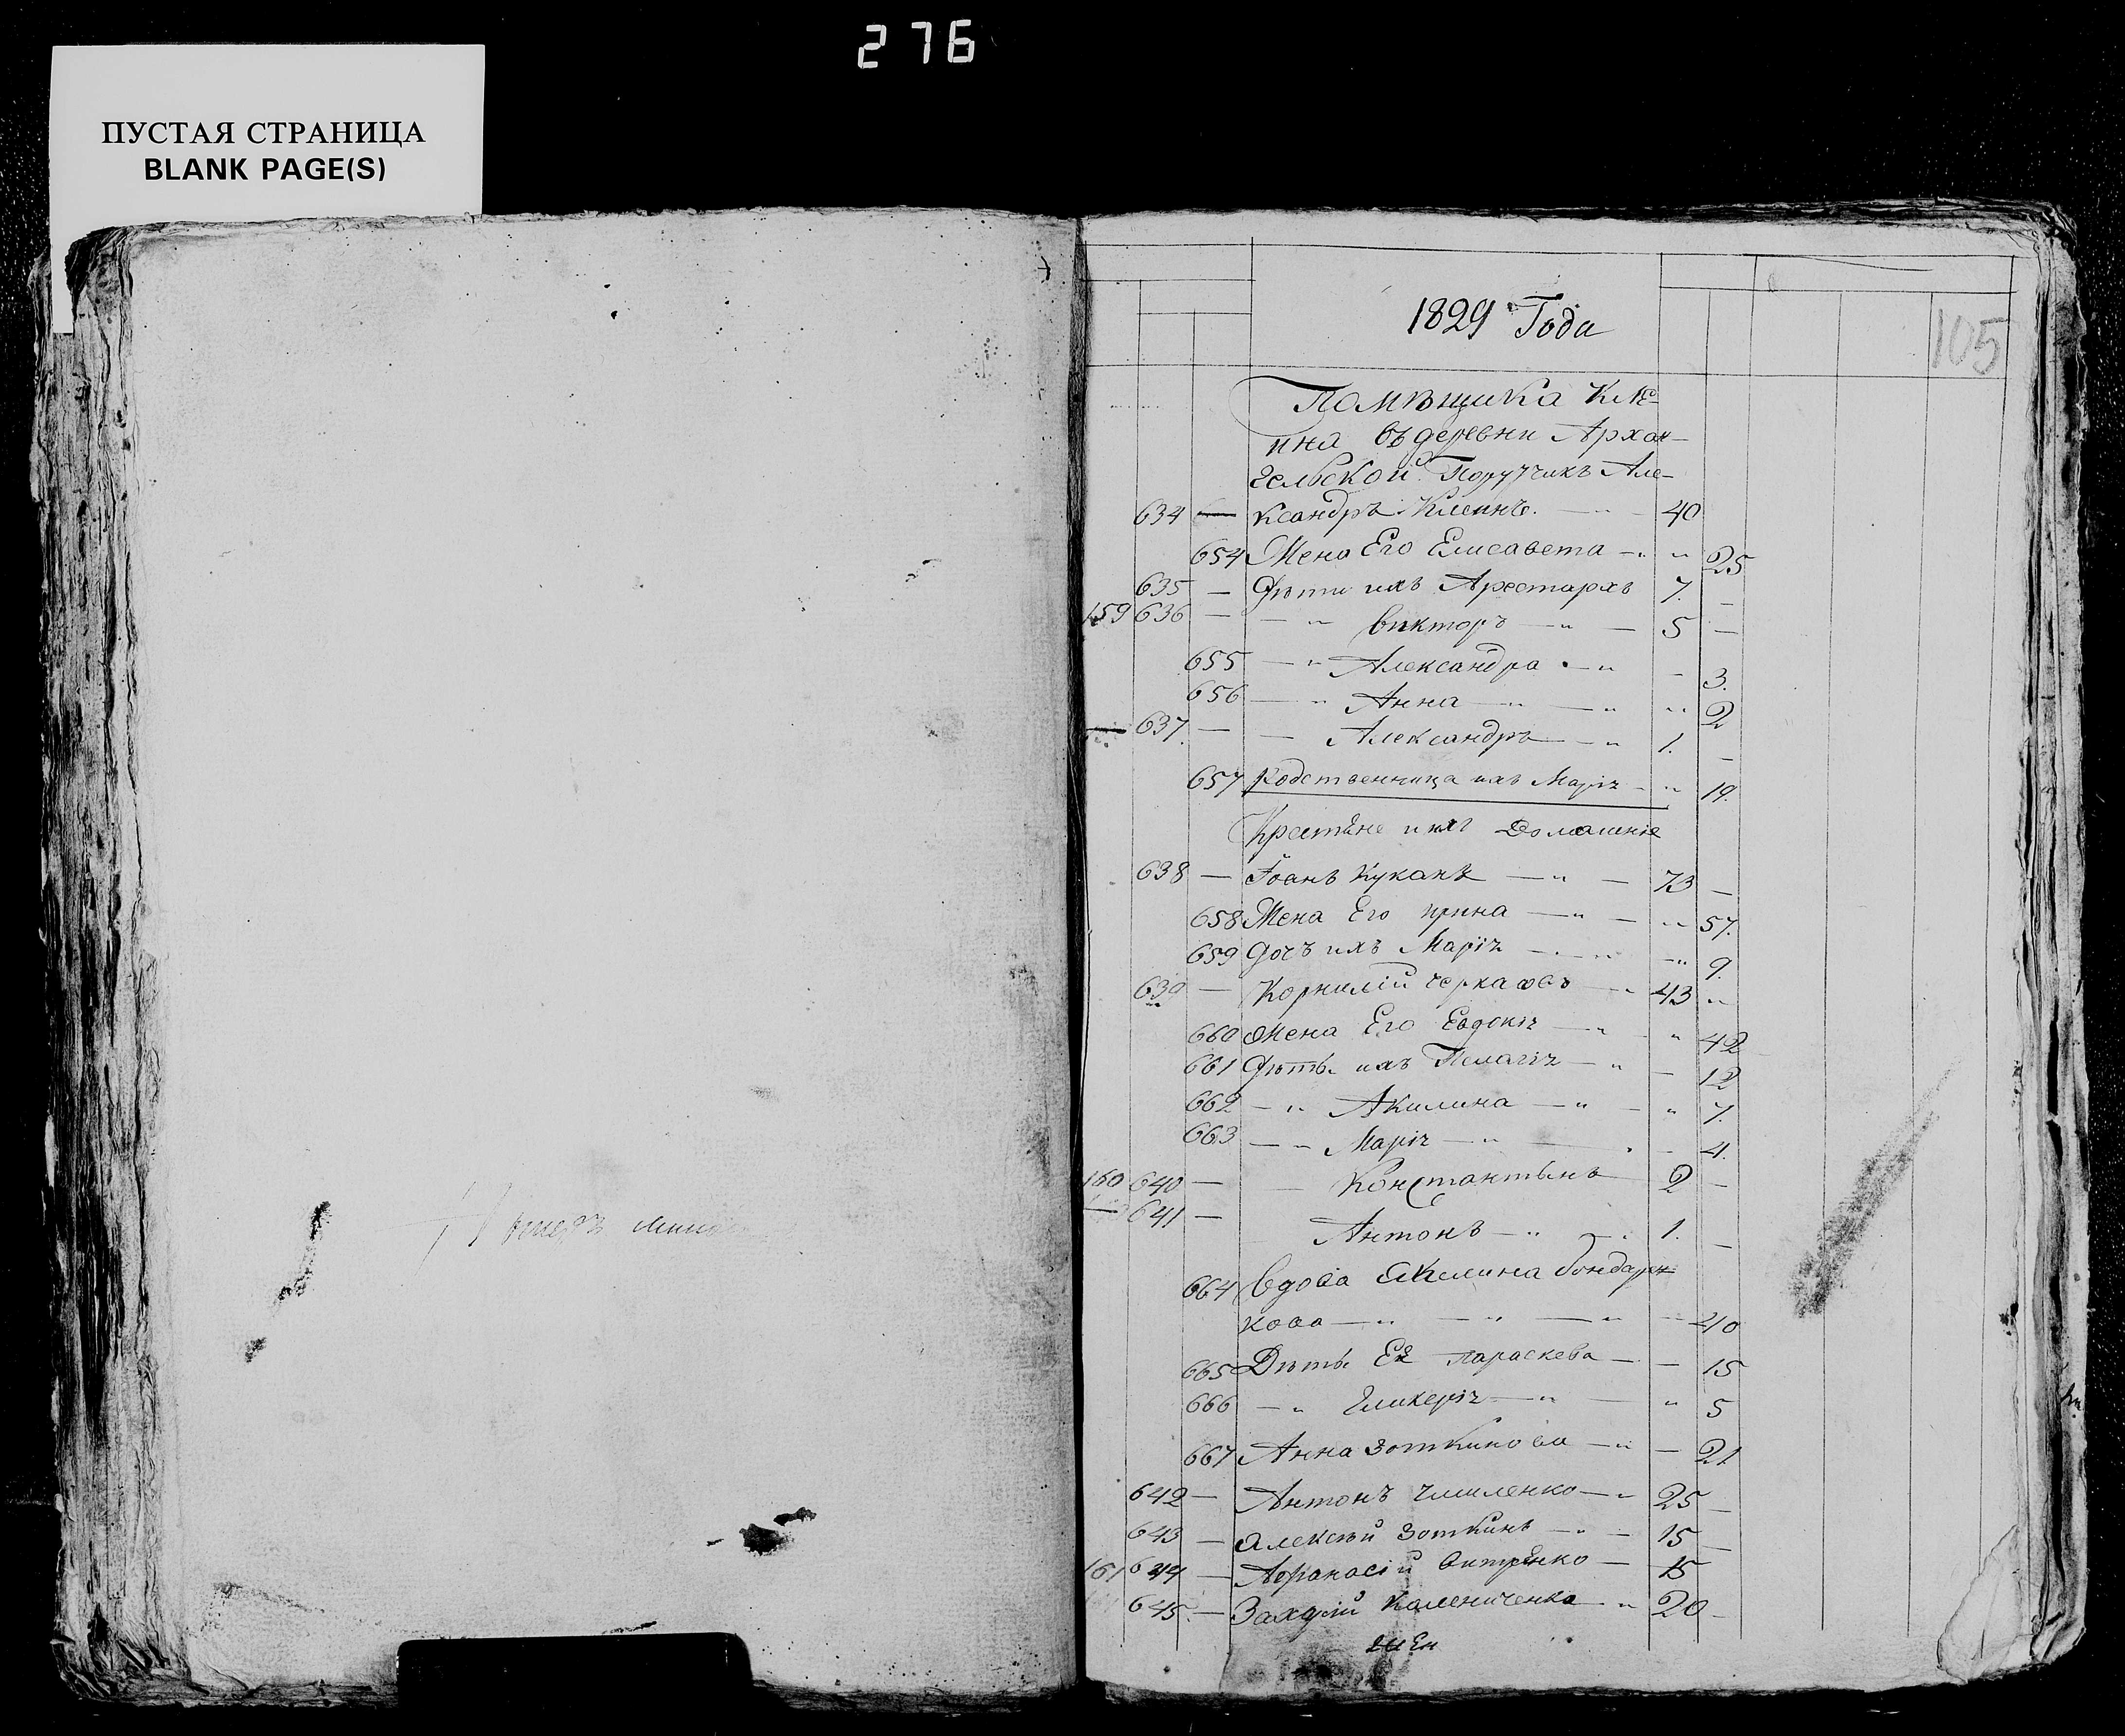 276
ПУСТАЯ СТРАНИЦА
BLANK PAGE(S)
105
1829 Года
Помѣщика Клѣ-
ина въ деревни Архан-
гельской Поручикъ Але-
634 — ксандръ Клеинъ. — 40
654 Жена Его Елисавета — " " 25
635 — Дѣти ихъ Арестархъ 7. —
159 636 — — " Викторъ — " — 5 —
655 — " Александра — " - 3.
656 — " Анна — " — " " 2
637 — — Александръ — " 1. —
657 Родственница ихъ Марія - " 19.
Крестяне ихъ Домашніе
638 — Іоанъ Кукаль — " — 73 —
658 Жена Его Ирина — " — " 57.
659 Дочъ ихъ Марія — " — " 9.
639 — Корнилій Черкасовъ " 43 "
660 Жена Его Евдокія — " " 42
661 Дѣти ихъ Пелагія — " — 12
662 — " Акилина — " — " 7.
663 — " Марія — " — - 4.
160 640 — — Константинъ 2 —
641 — Антонъ — " — 1. —
664 Вдова Акилина Бондарен
кова — " — " — " — 40
665 Дѣти Ея Параскева — — 15
666 — " Гликерія — " — " 5
667 Анна Зоткинова — " — 21
642 — Антонъ — " 25 —
643 — Алексѣй Зоткинъ — " — 15 —
161 644 — Афанасій — 15
645. — Захарій Калениченко — " 20 —